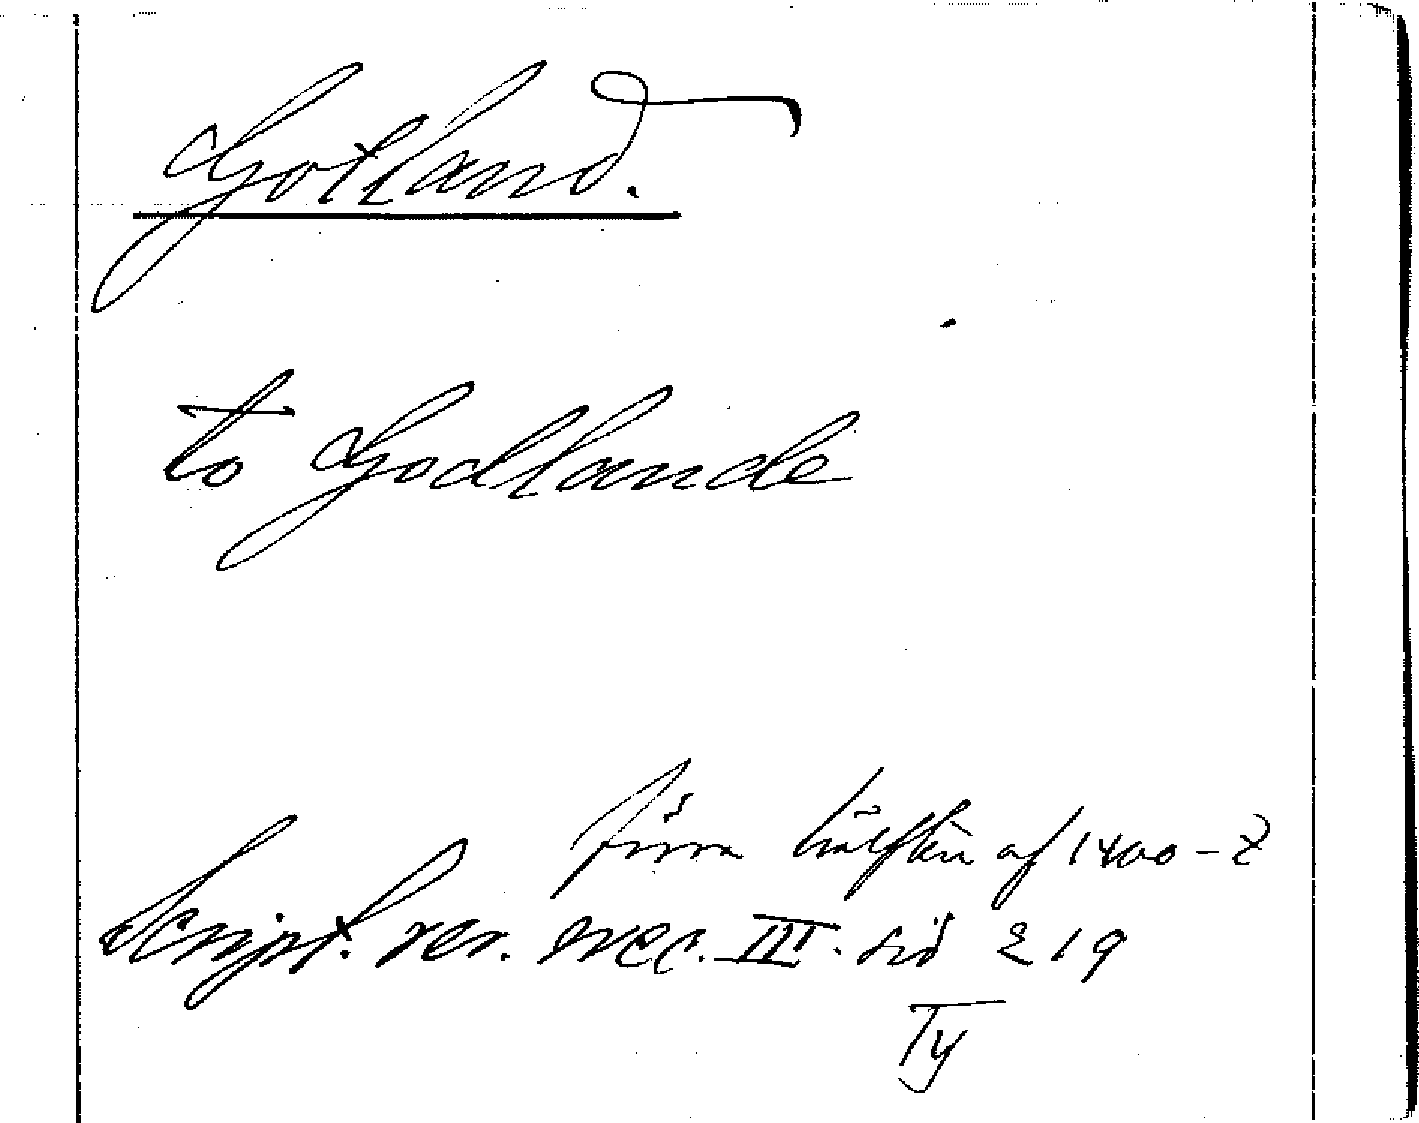 Gotland.
to Godlande
förra hälften af 1400-t
Script. rer. svec. III. sid 219
Ty